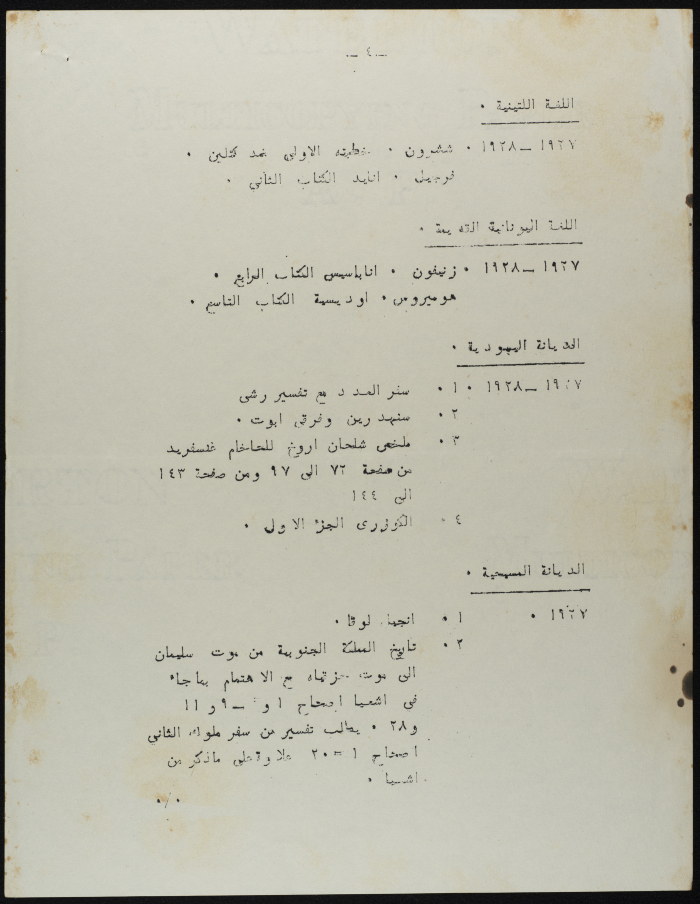 ـ ٤ ـ
اللغة اللتينية ٠
١٩٢٧ ــ ١٩٢٨ ٠ ششرون ٠ خطبته الاولى ضد كتلين ٠
فرجيل ٠ انايد الكتاب الثاني ٠
اللغة اليونانية القديمة ٠
١٩٢٧ ــ ١٩٢٨ ٠ زنيفون ٠ اناباسيس الكتاب الرابع ٠
هوميروس ٠ اوديسية الكتاب التاسع ٠
الديانة اليهودية ٠
١٩٢٧ ــ ١٩٢٨ ٠ ١ ٠ سفر العدد مع تفسير رشى
٢ ٠ سنهدرين وفرقى ابوت ٠
٣ ٠ ملخص شلحان اروخ للحاخام غنسفريد
من صفحة ٧٢ الى ٩٧ ومن صفحة ١٤٣
الى ١٤٤
٤ ٠ الكوزرى الجزء الاول ٠
الديانة المسيحية ٠
١٩٢٧ ٠ ١ ٠ انجيل لوقا ٠
٢ ٠ تاريخ المملكة الجنوبية من موت سليمان
الى موت حزقياه مع الاهتمام بماجاء
فى اشعيا اصحاح ١ و ــ ٩ و ١١
و ٢٨ ٠ يطلب تفسير من سفر ملوك الثاني
اصحاح ١ = ٢٠ علاوة على ماذكر من
اشعيا ٠
٠/٠